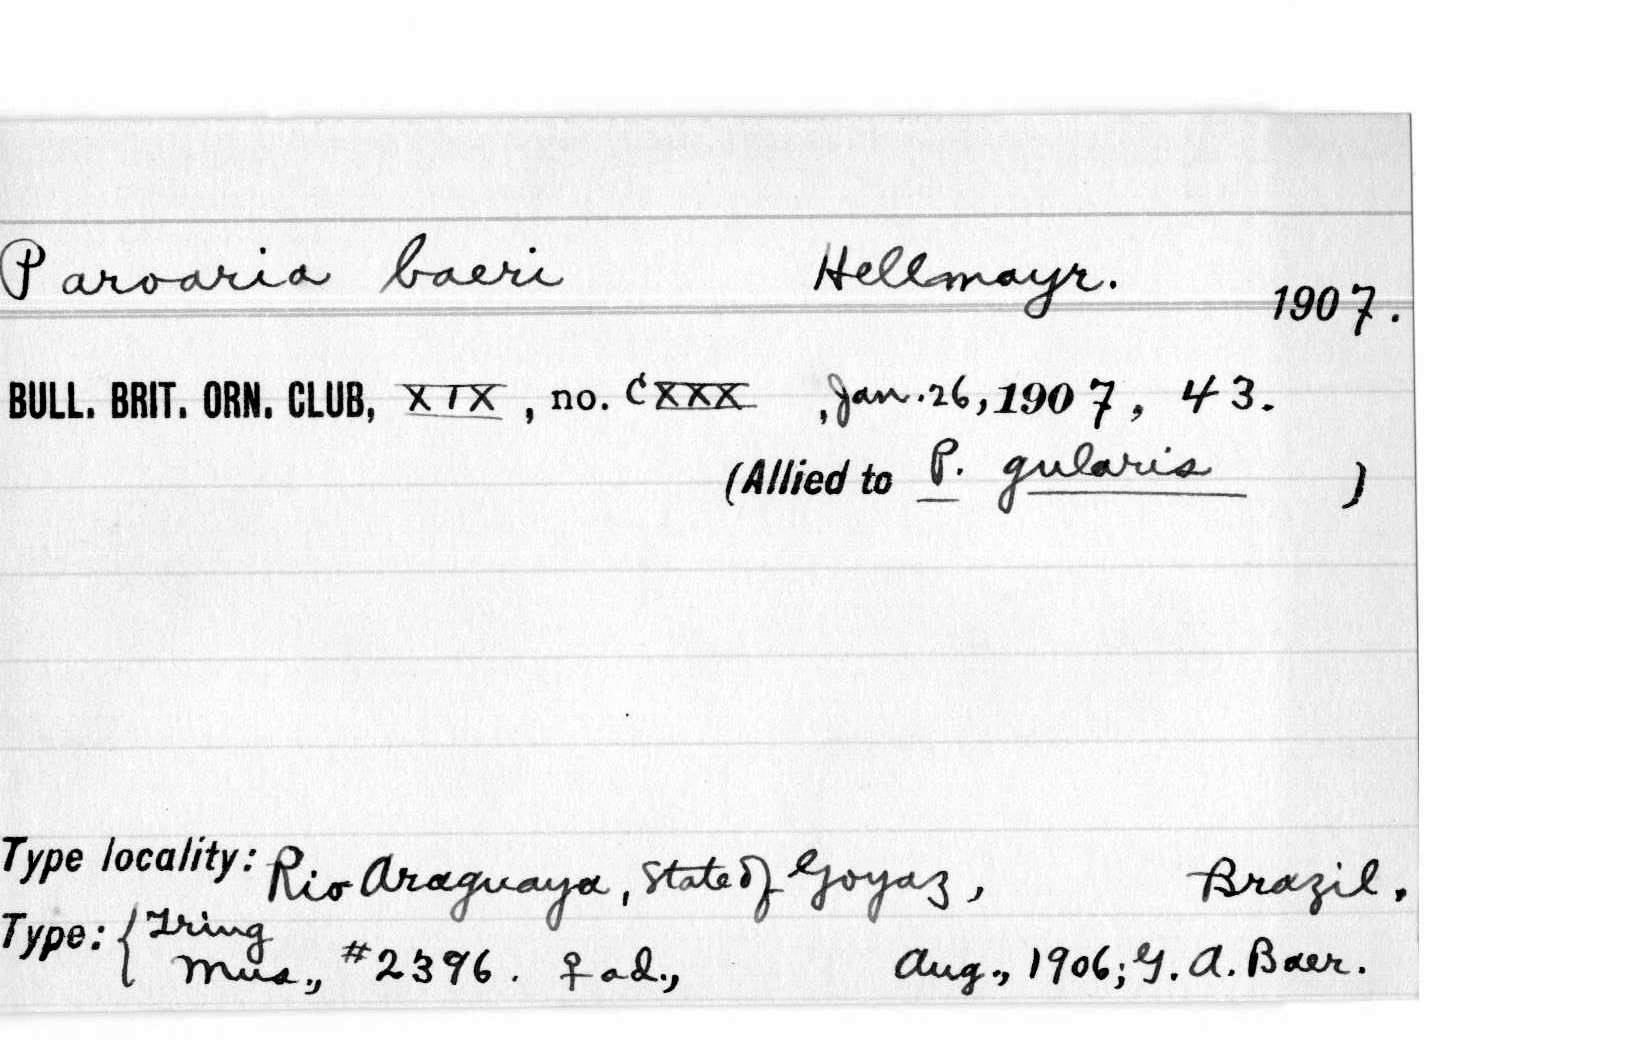 Paroaria baeri Hellmayr. 1907.
BULL. BRIT. ORN. CLUB, XIX, no. CXXX, Jan. 26, 1907, 43.
(Allied to P. gularis )
Type locality: Rio Araguaya, State of Goyaz, Brazil.
Type: { Tring
Mus., #2396. ♀ ad., Aug., 1906; G. A. Baer.